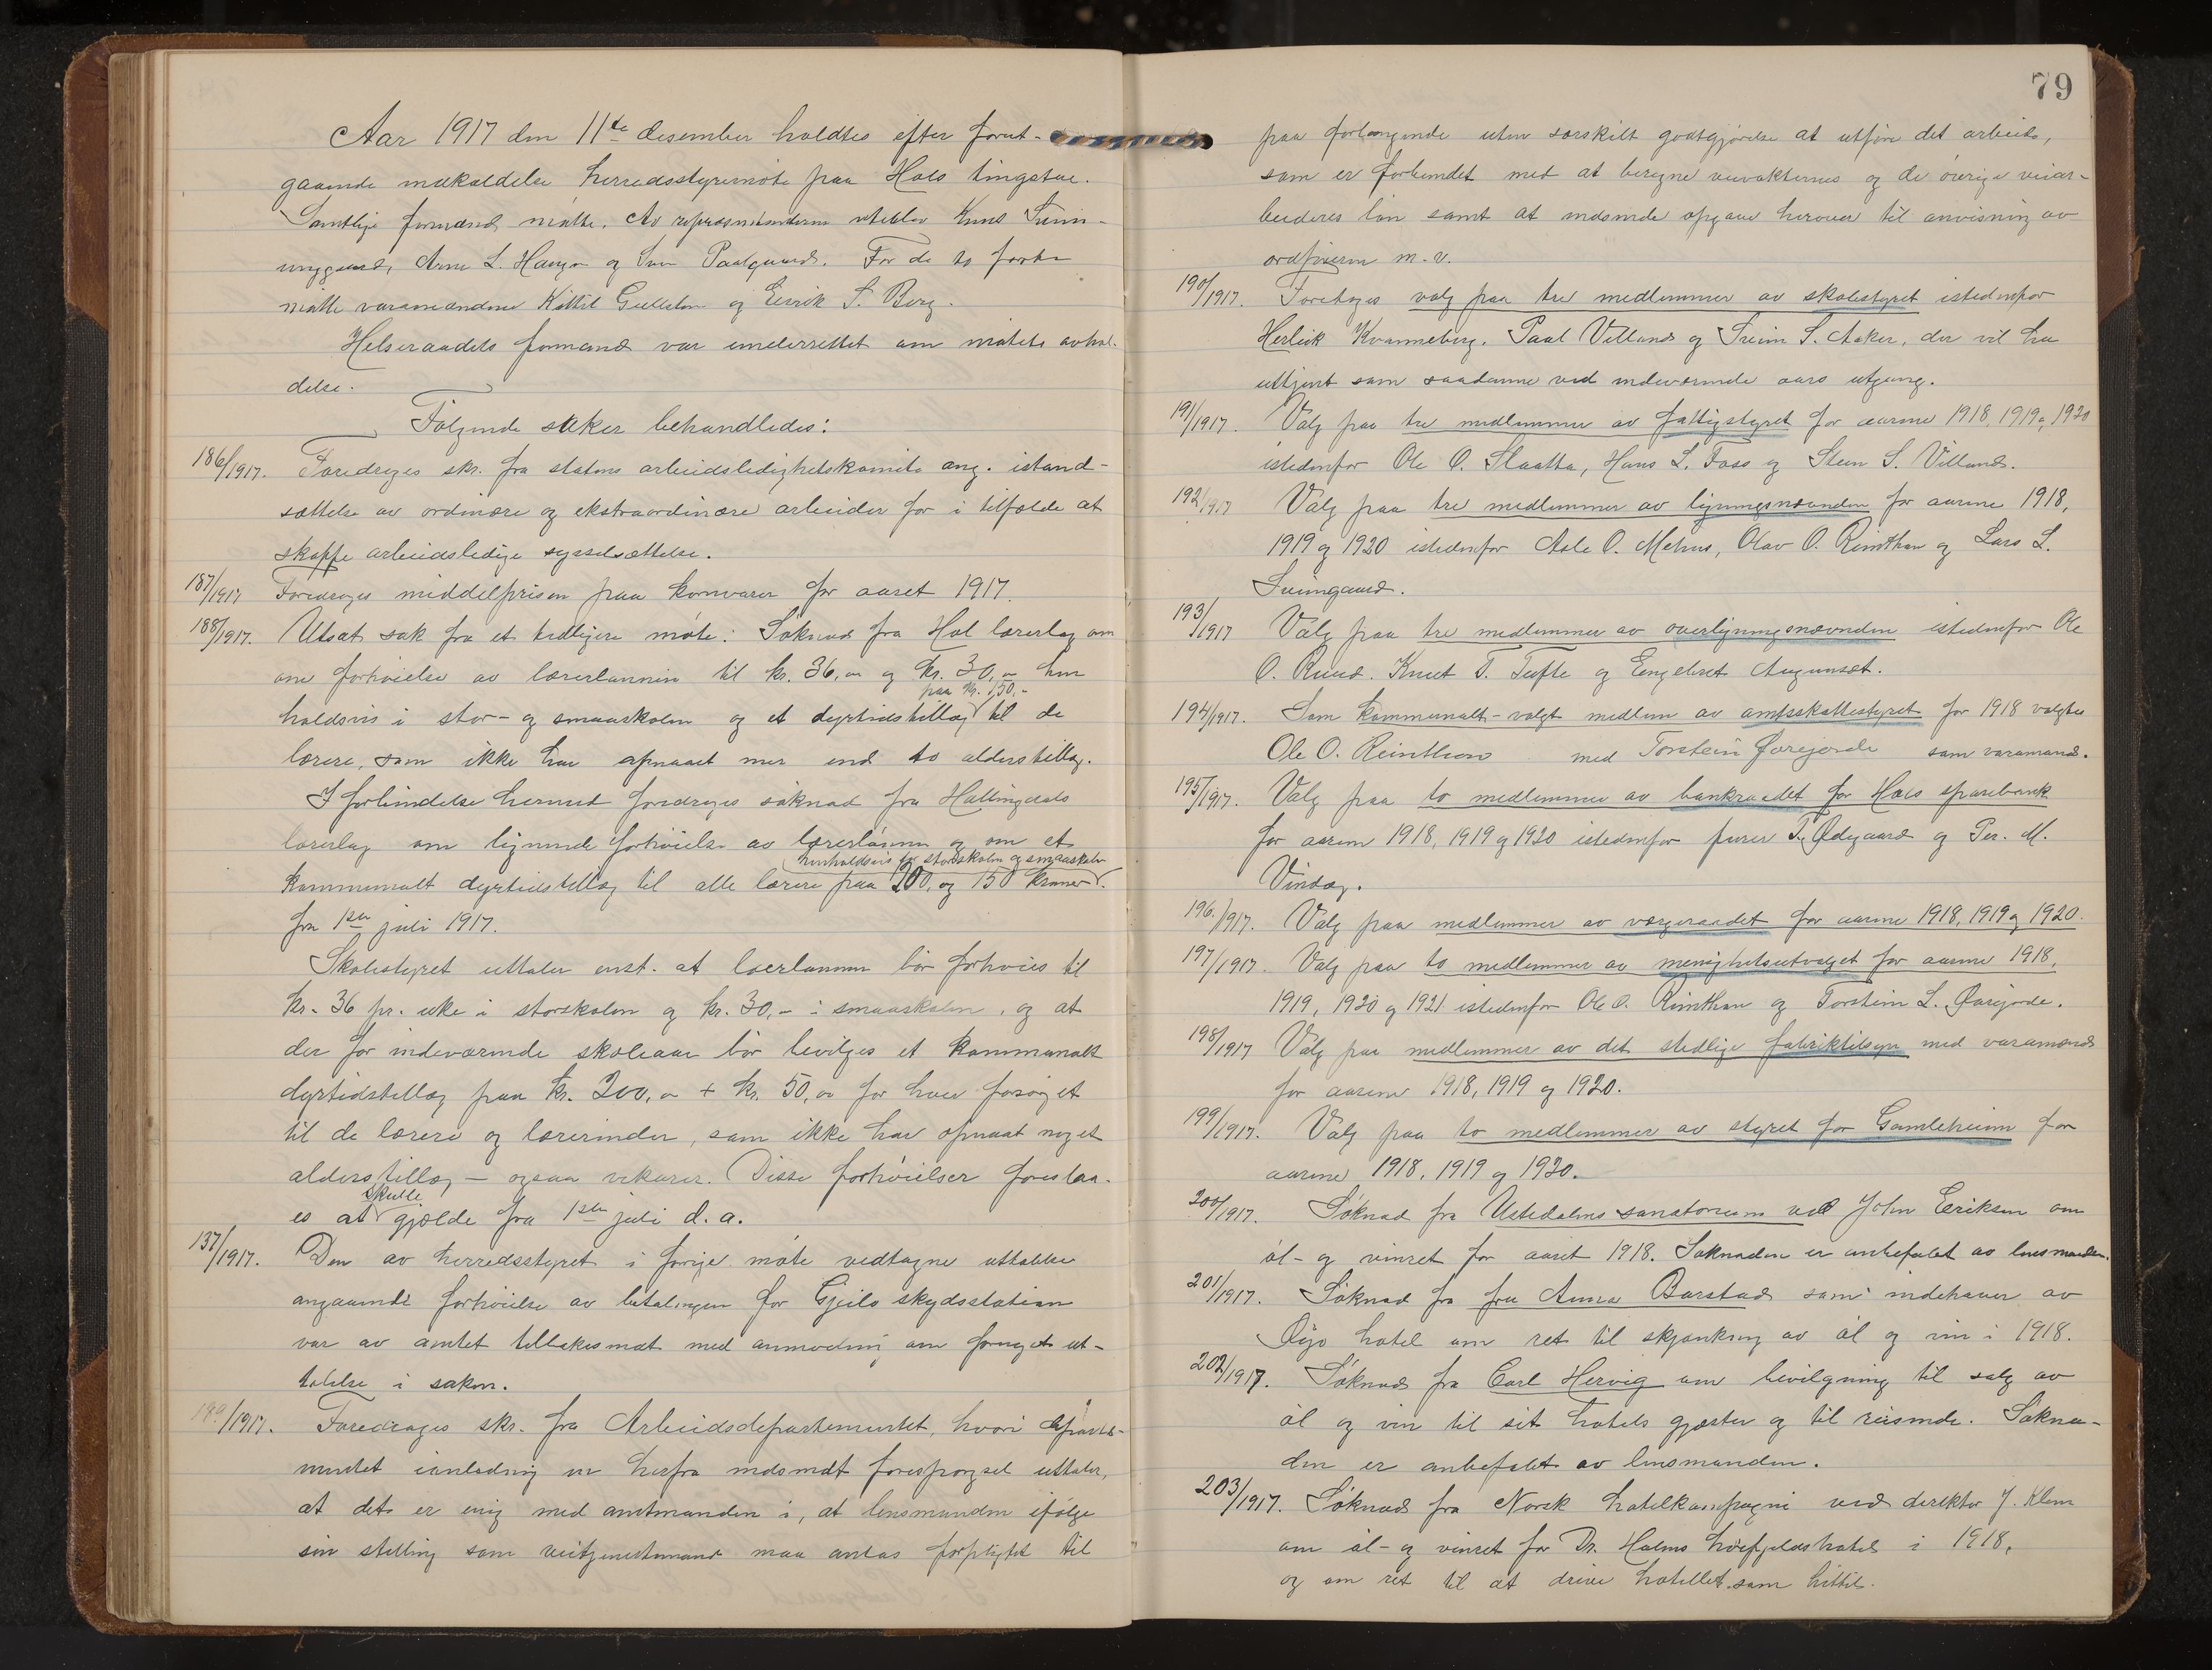 Aar 1917 den 11te desember holdtes efter forut-
gaaende indkaldelse herredsstyremøte paa Hols tingstue.
Samtlige formænd møtte. Av repræsentanterne uteblev Knut
Arne L. Haugen og Paalgaard. For de to første
møtte varamændene Kittil og Eirik S. Berg.
Helseraadets formand var underrettet om møtets avhol-
delse.
Følgende saker behandledes:
186/1917. Foredroges skr. fra statens arbeidsledighetskomite ang. istand-
sættelse av ordinære og ekstraordinære arbeider for i tilfælde at
skaffe arbeidsledige sysselsættelse.
187/1917 Foredroges middelprisen paa kornvarer for aaret 1917.
188/1917. Utsat sak fra et tidligere møte: Søknad fra Hol lærerlag om
om forhøielse av lærerlønnen til kr. 36,00 og kr. 30,00 hen
holdsvis i stor- og smaaskolen og et dyrtidstillæg paa kr. 150.- til de
lærere, som ikke har opnaaet mer end to alderstillæg.
I forbindelse hermed foredroges søknad fra Hallingdals
lærerlag om lignende forhøielse av lærerlønnen og om et
kommunalt dyrtidstillæg til alle lærere paa 200,- og 150 kroner henholdsvis for storskolen og smaaskolen.
fra 1ste juli 1917.
Skolestyret uttaler enst. at lærerlønnen bør forhøies til
kr. 36 pr. uke i storskolen og kr. 30,- i smaaskolen, og at
der for indeværende skoleaar bør bevilges et kommunalt
dyrtidstillæg paa kr. 200,00 + kr. 50,00 for hver forsørget
til de lærere og lærerinder, som ikke har opnaat noget
alderstillæg — ogsaa vikarer. Disse forhøielser foreslaa-
es at skulle gjælde fra 1ste juli d.a.
137/1917. Den av herredsstyret i forrige møte vedtagne uttalelse
angaaende forhøielse av betalingen for Gjeilo skydsstation
var av amtet tilbakesendt med anmodning om fornyet ut-
talelse i saken.
/1917. Foredroges skr. fra Arbeidsdepartementet, hvori departe-
mentet i anledning en herfra indsendt forespørgsel uttaler,
at det er enig med amtmanden i, at lensmanden ifølge
sin stilling som veitjenestemand maa antas forpligtet til
79
paa forlangende uten særskilt godtgjørelse at utføre det arbeide,
som er forbundet med at beregne veivokternes og de øvrige veiar-
beideres løn samt at indsende opgave herover til anvisning av
ordføreren m.v.
190/1917. Foretoges valg paa tre medlemmer av skolestyret istedenfor
Herleik Kvanneberg, Paal Villand og Svein S. Aaker, der vil ha
uttjent som saadanne ved indeværende aars utgang.
191/1917. Valg paa tre medlemmer av fattigstyret for aarene 1918, 1919 og 1920
istedenfor Ole O. Slaatta, Hans L. Foss og Sten S. Villand.
192/1917 Valg paa tre medlemmer av ligningsnævnden for aarene 1918,
1919 og 1920 istedenfor Asle O. Mehus, Olav O. Reinthon og Lars L.
193/1917 Valg paa tre medlemmer av overligningsnævnden istedenfor Ole
O. Ruud, Knut T. Tufte og Engebret Augunset.
194/1917. Som kommunalt-valgt medlem av amtsskattestyret for 1918 valgtes
Ole O. Reinthon med Torstein Øvrejorde som varamand.
195/1917. Valg paa to medlemmer av bankraadet for Hols sparebank
for aarene 1918, 1919 og 1920 istedenfor furer T. Ødegaard og Per M.
Vindeg.
196./1917. Valg paa medlemmer av vergeraadet for aarene 1918, 1919 og 1920.
197/1917. Valg paa to medlemmer av menighetsutvalget for aarene 1918,
1919, 1920 og 1921 istedenfor Ole O. Reinthon og Torstein L. Øvrejorde.
198/1917 Valg paa medlemmer av det stedlige fabriktilsyn med varamænd
for aarene 1918, 1919 og 1920.
199/1917. Valg paa to medlemmer av styret for Gamleheimen for
aarene 1918, 1919 og 1920.
200/1917. Søknad fra Ustedalens sanatorium ved John Eriksen om
øl- og vinret for aaret 1918. Søknaden er anbefalet av lensmanden.
201/1917. Søknad fra fru Anna Barstad som indehaver av
hotel om ret til skjænkning av øl og vin i 1918.
202/1917. Søknad fra Carl Hervig om bevilgning til salg av
øl og vin til sit hotels gjæster og til reisende. Søkna-
den er anbefalet av lensmanden.
203/1917. Søknad fra Norsk hotelkompagni ved direktør J. Klem
om øl- og vinret for Dr. Holms høifjeldshotel i 1918,
og om ret til at drive hotellet som hittil.